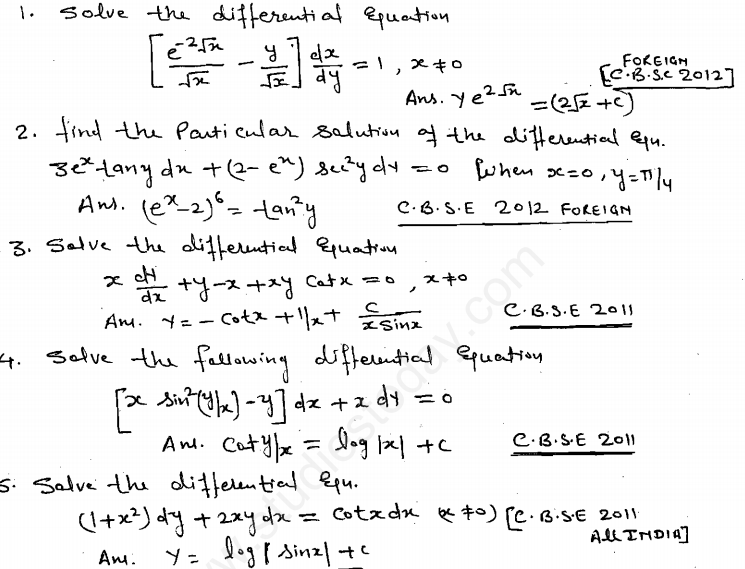 1. Solve the differential Equation
[e^-2√x/√x - y/√x] dx/dy = 1, x ≠ 0
FOREIGN
[C.B.S.C 2012]
Ans. y e^2√x = (2√x + c)
2. find the Particular Solution of the differential Equ.
3e^x tany dx + (2 - e^x) sec²y dy = 0 [When x=0, y=π/4
Ans. (e^x-2)^6 = tan²y C.B.S.E 2012 FOREIGN
3. Solve the differential Equation
x dy/dx + y - x + xy Cotx = 0, x ≠ 0
Ans. y = - Cotx + 1/x + C/xSinx C.B.S.E 2011
4. Solve the following differential Equation
[x sin²(y/x) - y] dx + x dy = 0
Ans. Cot y/x = log |x| + C C.B.S.E 2011
5. Solve the differential Equ.
(1+x²) dy + 2xy dx = Cotx dx (x ≠ 0) [C.B.S.E 2011
All INDIA]
Ans. y = log | Sinx| + C
www.studiestoday.com